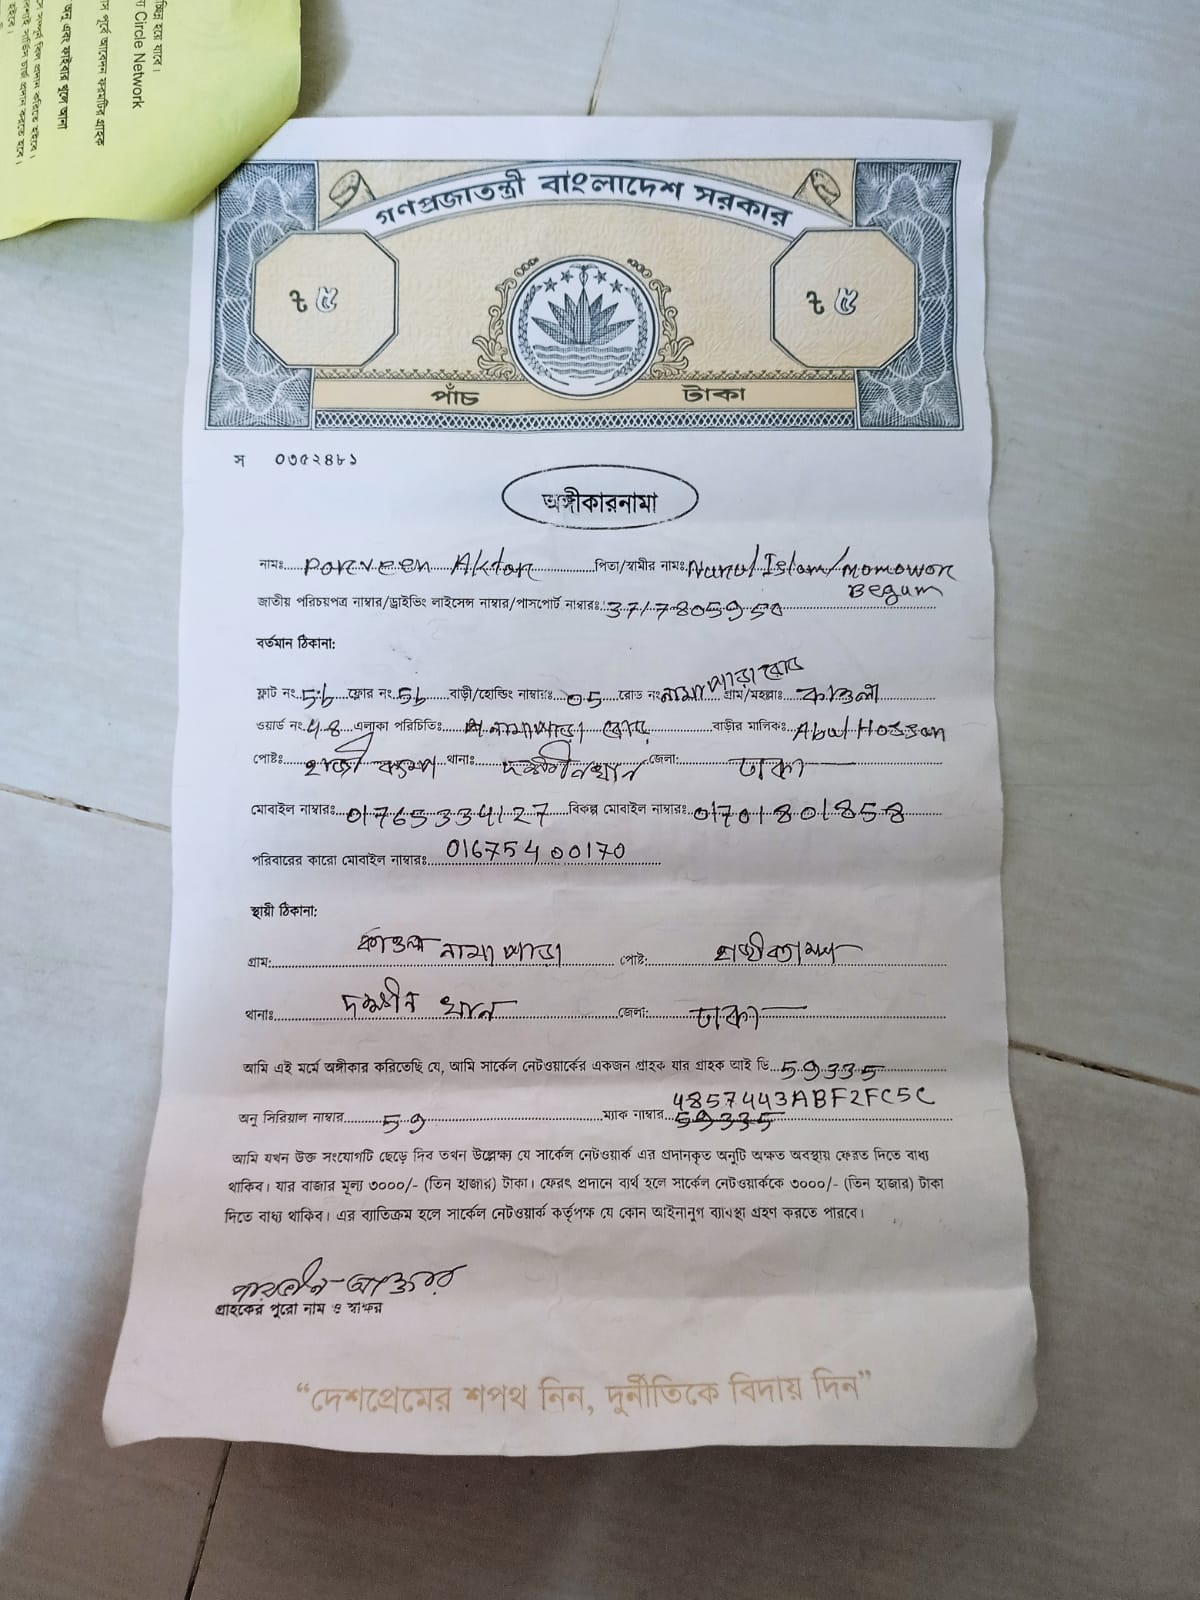 চ্ছিন্ন হয়ে যাবে।
Circle Network
স পূর্বে আবেদন ফরমটির গ্রাহক
অনু এবং ফাইবার খুলে আনা
গণপ্রজাতন্ত্রী বাংলাদেশ সরকার
৳ ৫ ৳ ৫
পাঁচ টাকা
স ০৩৫২৪৮১
অঙ্গীকারনামা
নামঃ Parveen Aktar পিতা/স্বামীর নামঃ Nurul Islam/momowor
Begum
জাতীয় পরিচয়পত্র নাম্বার/ড্রাইভিং লাইসেন্স নাম্বার/পাসপোর্ট নাম্বারঃ 3717805950
বর্তমান ঠিকানা:
ফ্লাট নং 5b ফ্লোর নং 5b বাড়ী/হোল্ডিং নাম্বারঃ 05 রোড নং নামাপাড়া রোড গ্রাম/মহল্লাঃ কাওলা
ওয়ার্ড নং 48 এলাকা পরিচিতিঃ নামাপাড়া রোড বাড়ীর মালিকঃ Abul Hossan
পোষ্টঃ হাজী ক্যাম্প থানাঃ দক্ষীনখান জেলা: ঢাকা
মোবাইল নাম্বারঃ 01765334127 বিকল্প মোবাইল নাম্বারঃ 01701801858
পরিবারের কারো মোবাইল নাম্বারঃ 016754 00170
স্থায়ী ঠিকানা:
গ্রাম: কাওলা নামা পাড়া পোষ্ট: হাজীক্যাম্প
থানাঃ দক্ষীন খান জেলা: ঢাকা
আমি এই মর্মে অঙ্গীকার করিতেছি যে, আমি সার্কেল নেটওয়ার্কের একজন গ্রাহক যার গ্রাহক আই ডি 59335
4857443ABF2FC5C
অনু সিরিয়াল নাম্বার 59 ম্যাক নাম্বার 59335
আমি যখন উক্ত সংযোগটি ছেড়ে দিব তখন উল্লেক্ষ্য যে সার্কেল নেটওয়ার্ক এর প্রদানকৃত অনুটি অক্ষত অবস্থায় ফেরত দিতে বাধ্য
থাকিব। যার বাজার মূল্য ৩০০০/- (তিন হাজার) টাকা। ফেরৎ প্রদানে ব্যর্থ হলে সার্কেল নেটওয়ার্ককে ৩০০০/- (তিন হাজার) টাকা
দিতে বাধ্য থাকিব। এর ব্যাতিক্রম হলে সার্কেল নেটওয়ার্ক কর্তৃপক্ষ যে কোন আইনানুগ ব্যাবস্থা গ্রহণ করতে পারবে।
পারভীন আক্তার
গ্রাহকের পুরো নাম ও স্বাক্ষর
“দেশপ্রেমের শপথ নিন, দুর্নীতিকে বিদায় দিন”